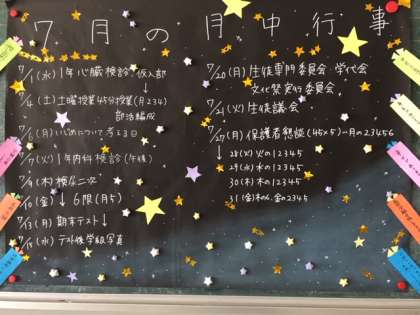 7月の月中行事
7/1(水)1年心臓検診・仮入部
↓
7/4(土)土曜授業45分授業(月234)
部活編成
7/6(月)いじめについて考える日
7/7(火)1年内科検診(午後)
7/9(木)検尿二次
7/10(金)↓6限(月5)
7/13(月)期末テスト↓
7/15(水)テスト後学級写真
7/20(月)生徒専門委員会・学代会
文化祭実行委員会
7/21(火)生徒議会
7/27(月)保護者懇談(45×5)→月の23456
↓
28(火)火の12345
29(水)水の12345
30(木)木の12345
31(金)木の6、金の2345